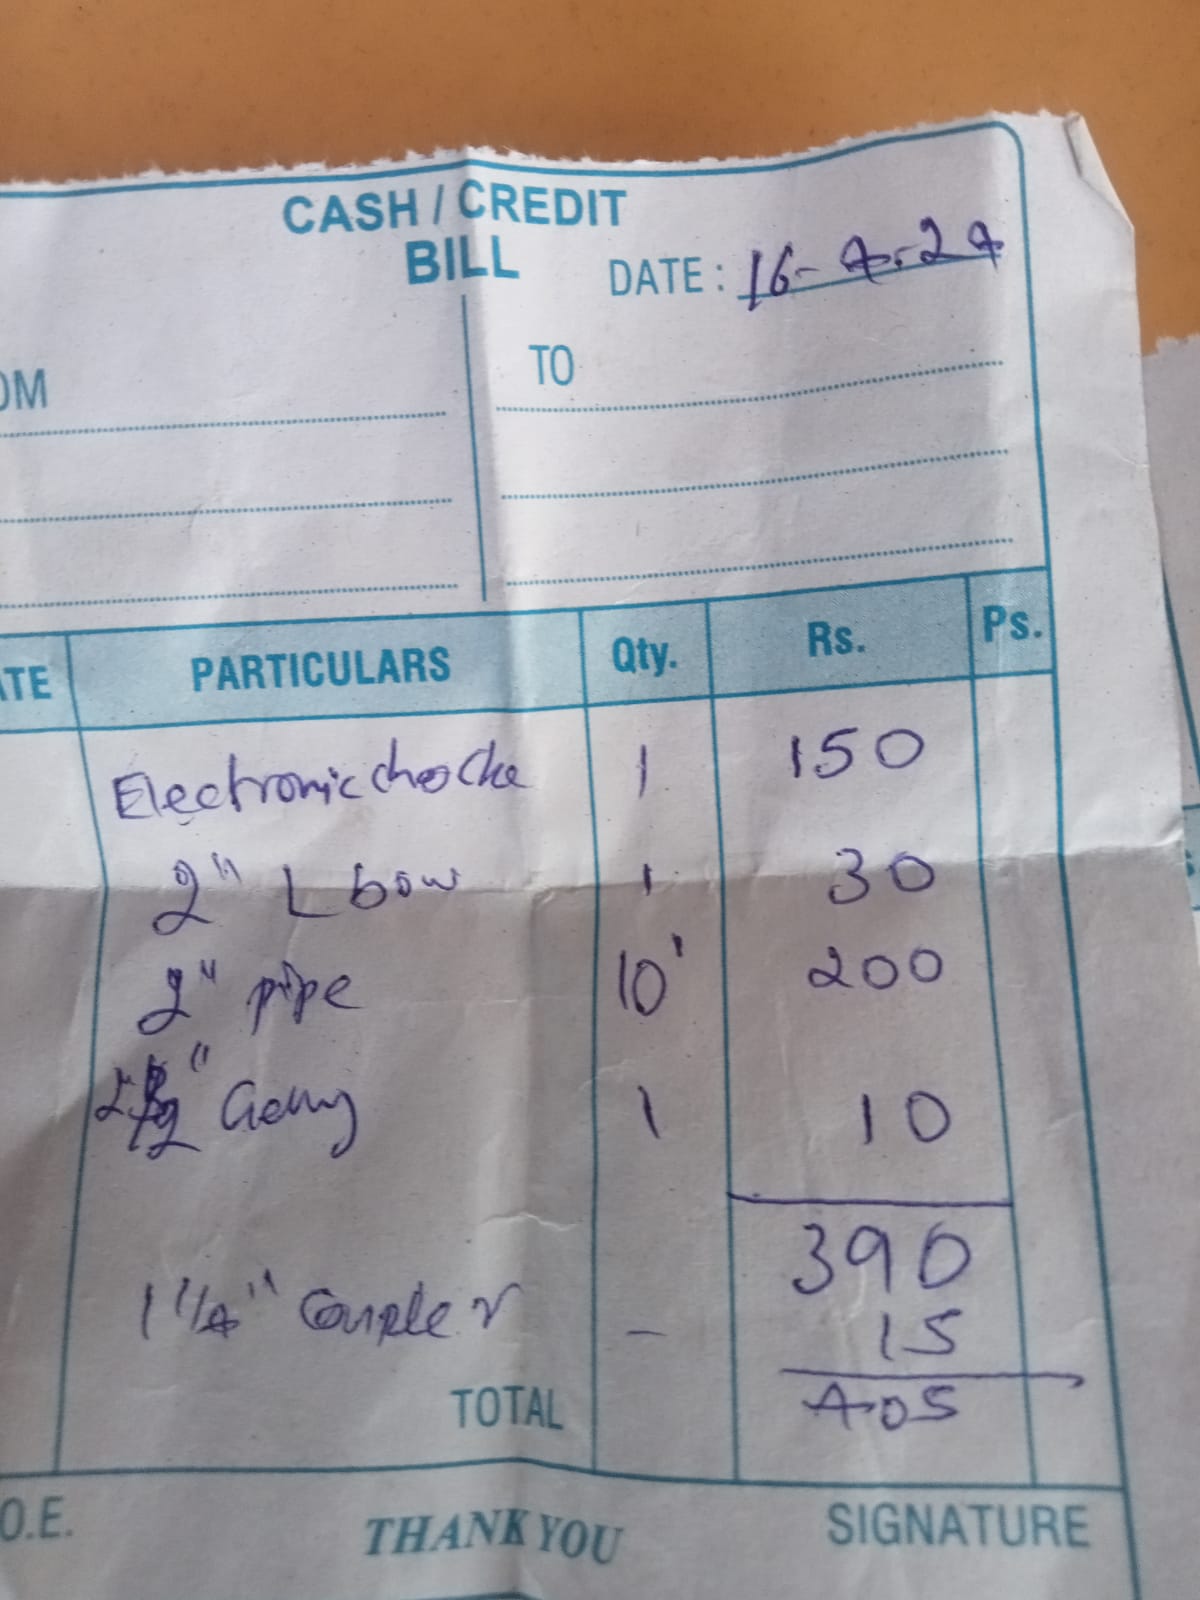 CASH / CREDIT
BILL
DATE : 16-4-24
OM
TO
ATE PARTICULARS Qty. Rs. Ps.
Electronic chocke 1 150
2" L bow 1 30
2" pipe 10' 200
1 10
390
1 1/4" Coupler - 15
TOTAL 405
O.E. THANK YOU SIGNATURE